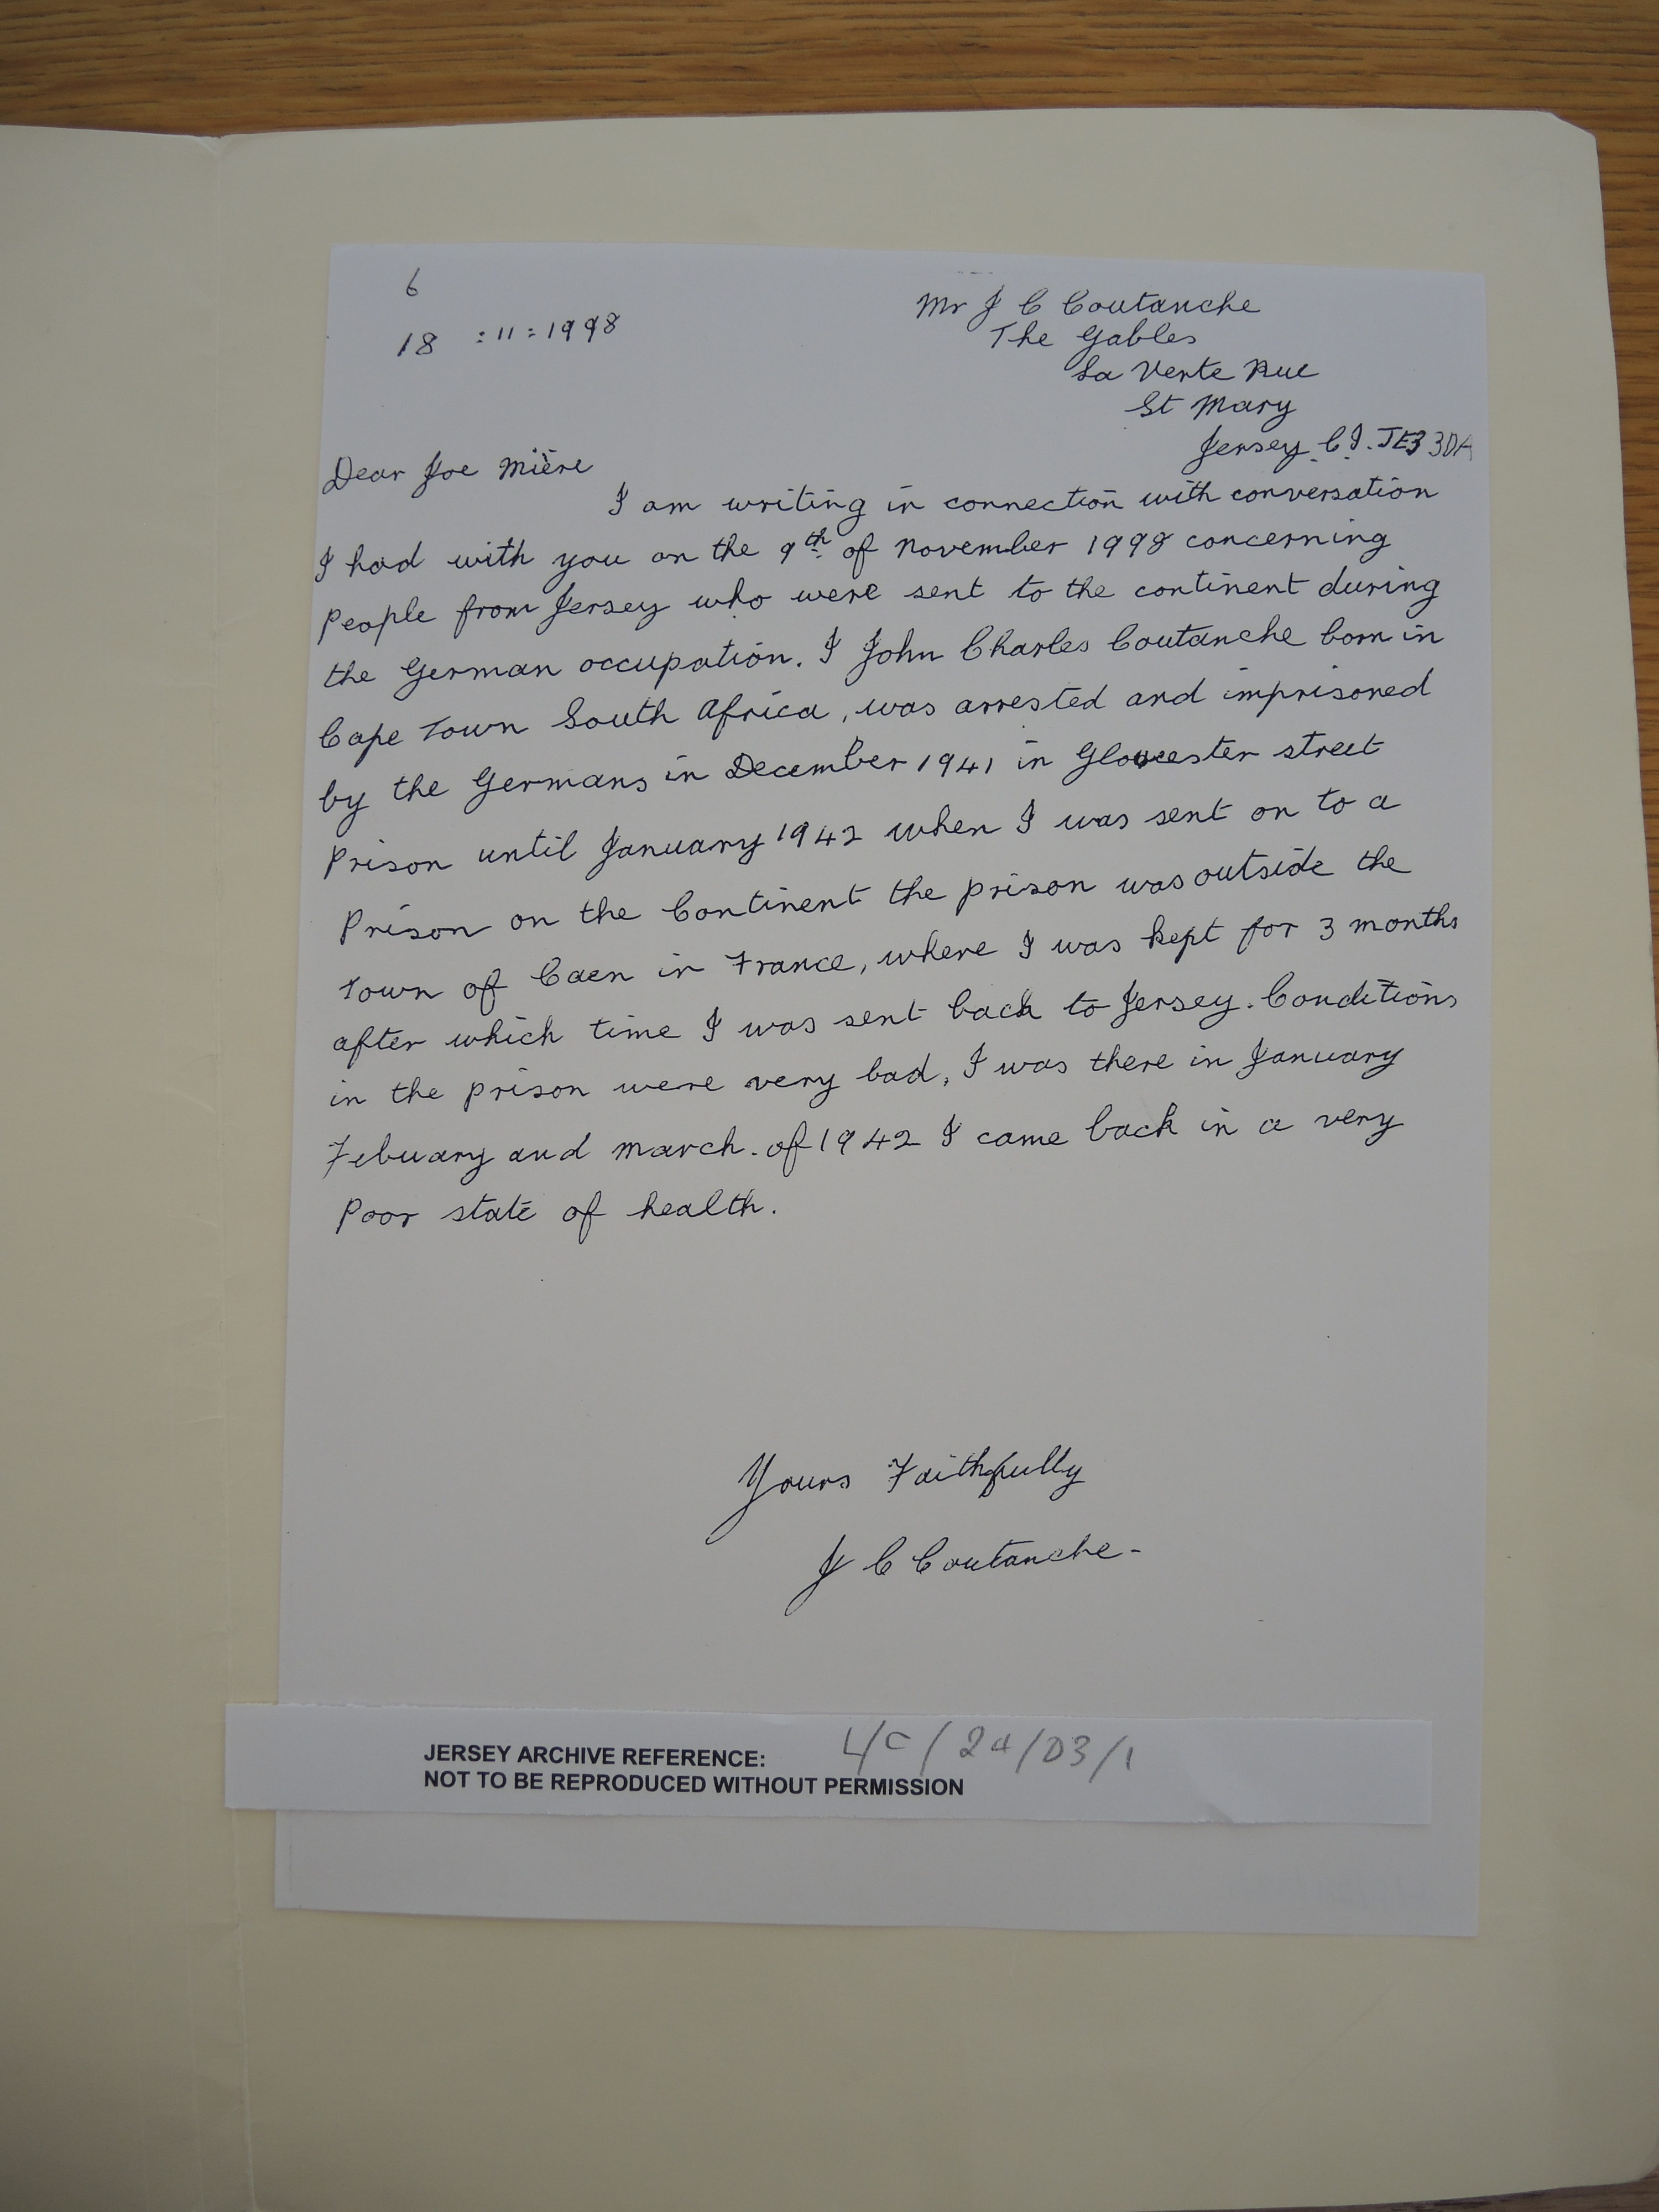 6
18 : 11 : 1998
Mr J C Coutanche
The Gables
La Verte Rue
St Mary
Jersey C.I. JE3 3DA
Dear Joe Mière
I am writing in connection with conversation
I had with you on the 9th of November 1998 concerning
People from Jersey who were sent to the continent during
the German occupation. I John Charles Coutanche born in
Cape Town South Africa, was arrested and imprisoned
by the Germans in December 1941 in Gloucester street
Prison until January 1942 when I was sent on to a
Prison on the Continent the prison was outside the
Town of Caen in France, where I was kept for 3 months
after which time I was sent back to Jersey. Conditions
in the prison were very bad, I was there in January
Febuary and March. of 1942 I came back in a very
Poor state of health.
Yours Faithfully
J C Coutanche-
JERSEY ARCHIVE REFERENCE: L/C/24/D3/1
NOT TO BE REPRODUCED WITHOUT PERMISSION